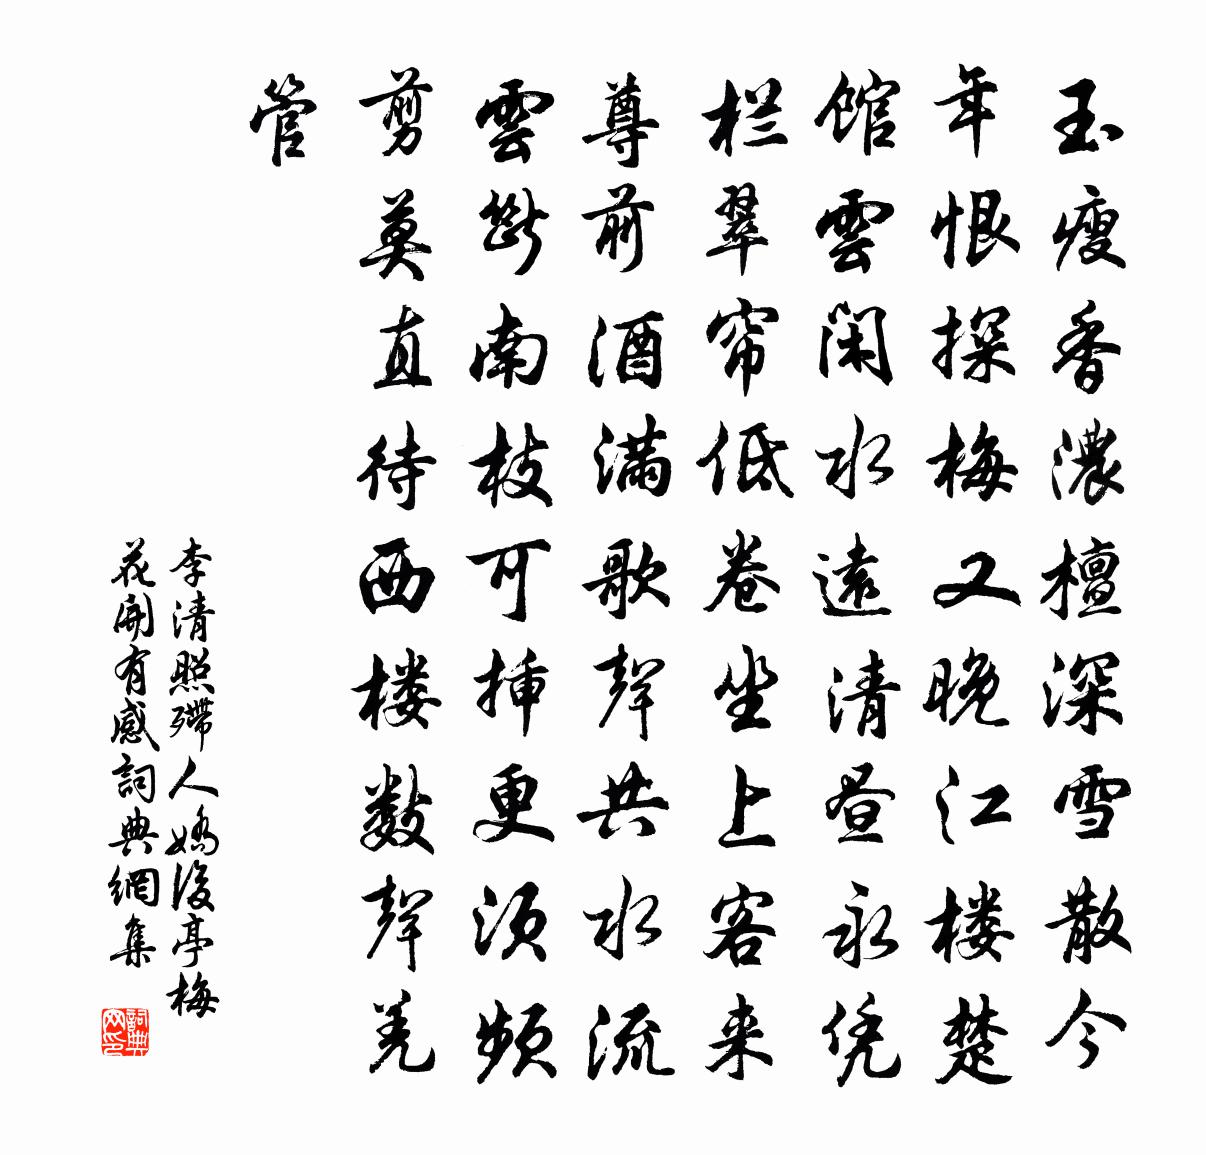 玉瘦香濃檀深雪散今
年恨探梅又晚江楼楚
馆雲閑水遠清昼永凭
栏翠帘低卷坐上客来
尊前酒满歌聲共水流
雲斷南枝可插更须频
剪莫直待西楼数聲羌
管
李清照殢人嬌後亭梅
花開有感詞典網集
詞典网印